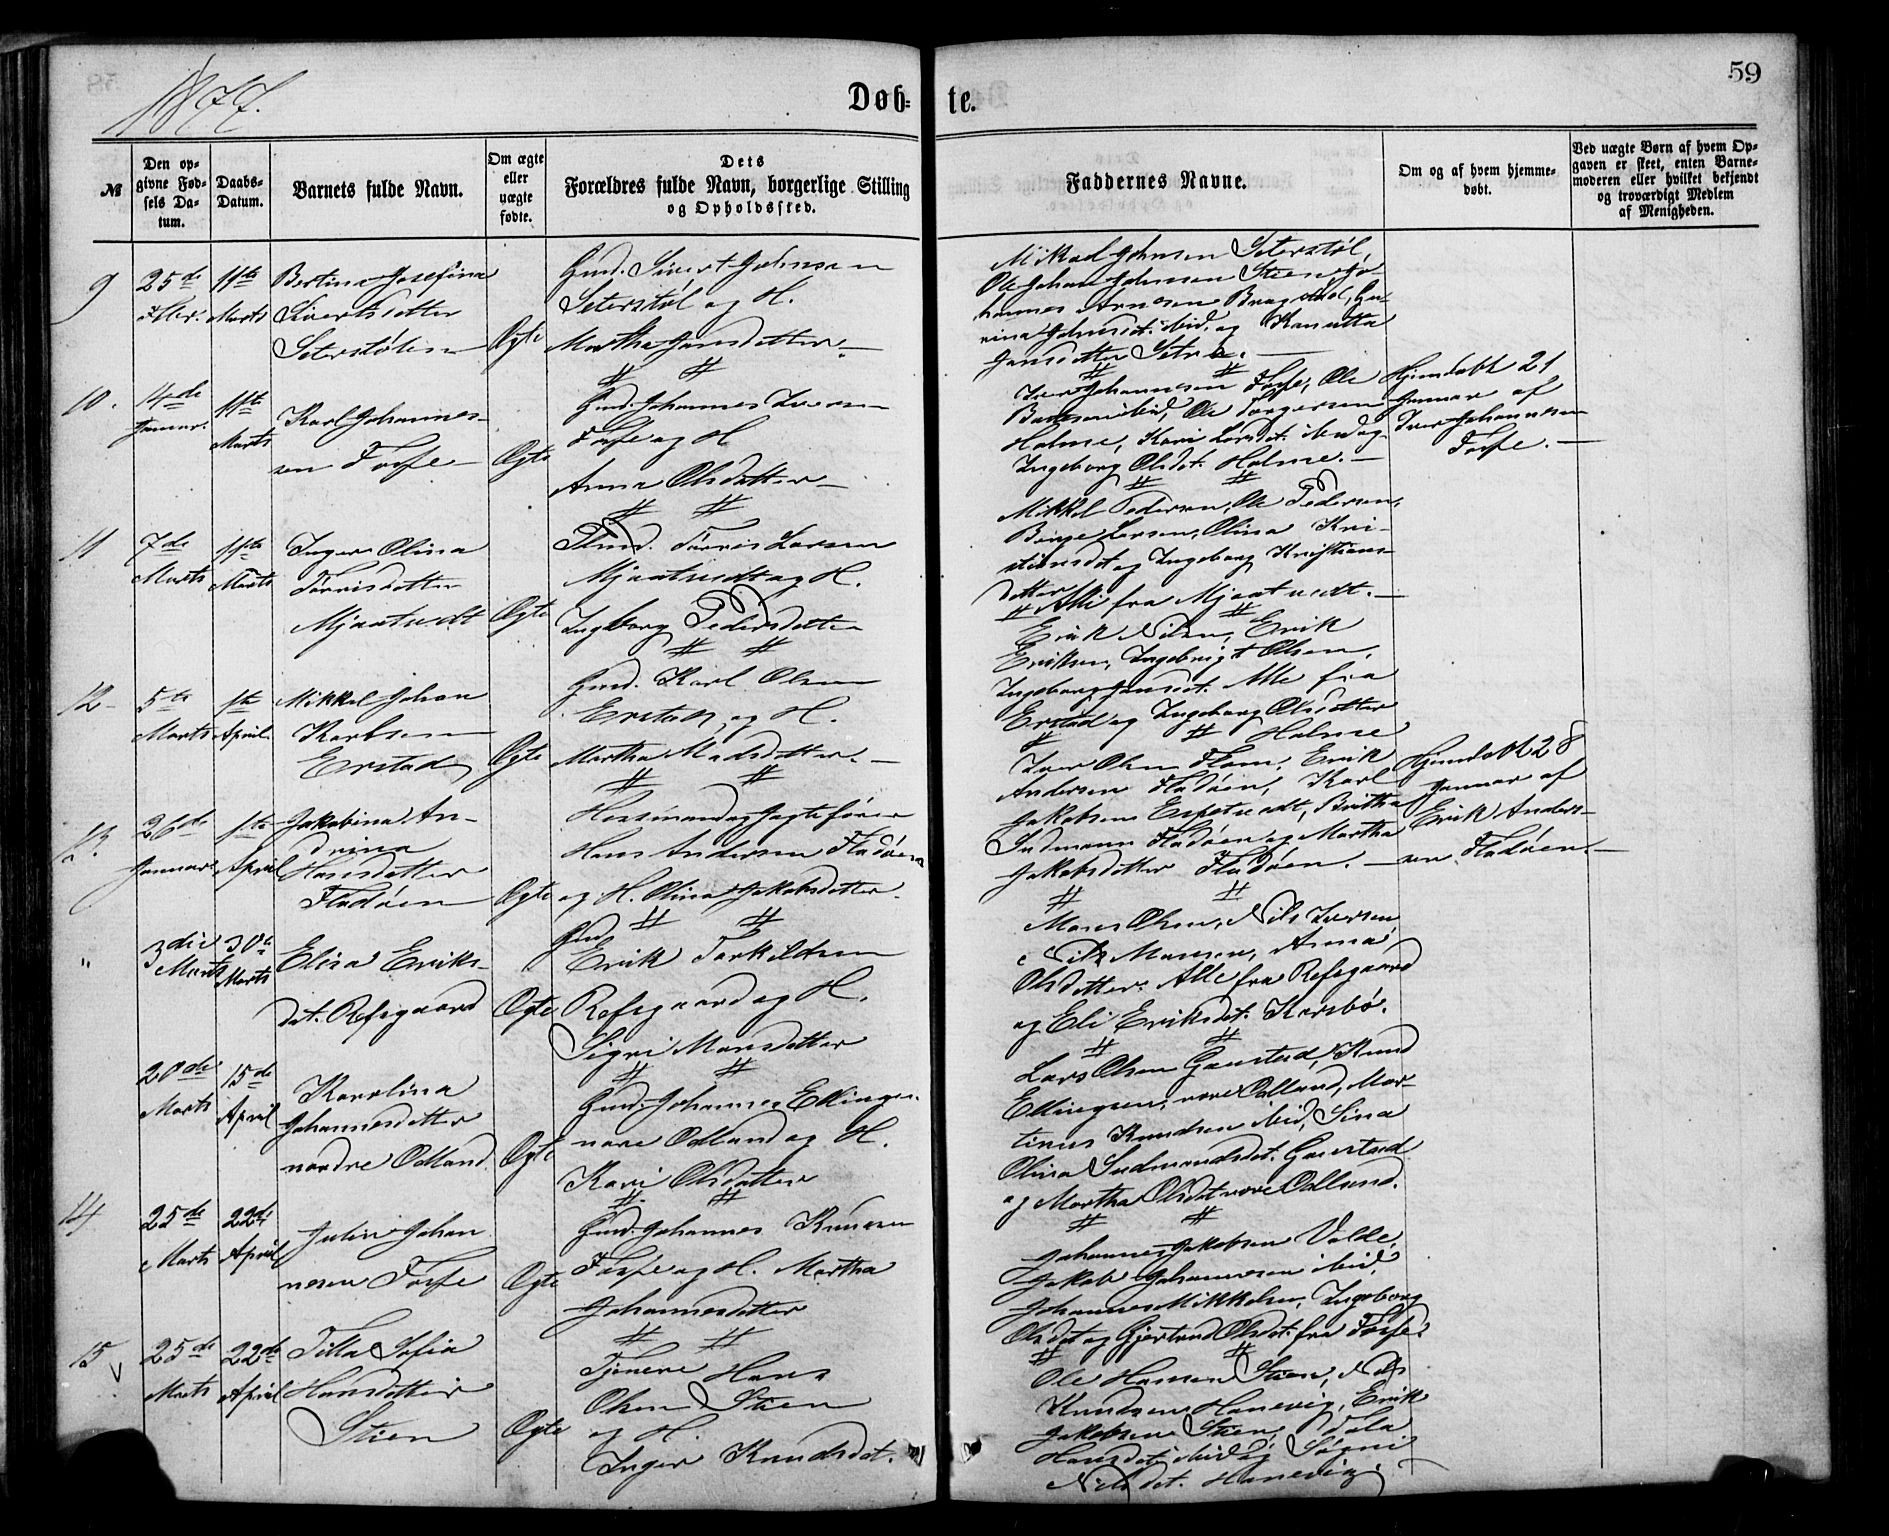 1877.
Døb-
te.
59
№
Den op-
givne Fød-
sels Da-
tum.
Daabs-
Datum.
Barnets fulde Navn.
Om ægte
eller
uægte
fødte.
Dets
Forældres fulde Navn, borgerlige Stilling
og Opholdssted.
Faddernes Navne.
Om og af hvem hjemme-
døbt.
Ved uægte Børn af hvem Op-
gaven er skeet, enten Barne-
moderen eller hvilket bekjendt
og troværdigt Medlem
af Menigheden.
9
25de
11te
Marts
Bertina Josefina
Sivertsdatter
Seterstølen
Ægte
Gmd. Sivert Johnsen
Seterstøl og H.
Martha Jansdatter
Mikael Johnsen Seterstøl,
Ole Johan Johnsen Steen, Jo-
hannes Arnesen Bragstad,
Johnsdt. ibid, og
Jansdatter Setre.
10.
14de
Januar.
11te
Marts
Karl Johannes-
sen Fosse
Ægte
Gmd. Johannes Iversen
Fosse og H.
Anna Olsdatter
Iver Johannesen Fosse, Ole
ibid, Ole Torgersen
Holme, Kari Larsdt. ibid og
Ingeborg Olsdt. Holme.
Hjemdøbt 21
Januar af
Iver Johannesen
Fosse.
11
7de
Marts
11te
Marts
Inger Olina
Tørrisdatter
Mjaatvedt
Ægte
Gmd. Tørris Larsen
Mjaatvedt og H.
Ingborg Pedersdatter
Mikkel Pedersen, Ole Pedersen,
Børge Larsen, Olina Kri-
stiansdt og Ingeborg Kristians-
datter Alle fra Mjaatvedt.
12
5te
Marts
1ste
April
Mikkel Johan
Karlsen
Erstad
Ægte
Gmd. Karl Olsen
Erstad og H.
Martha Madsdatter.
Erik Nilsen, Erik
Eriksen, Ingebrigt Olsen,
Ingeborg Jansdt. Alle fra
Erstad og Ingeborg Olsdatter
Holme
13.
26de
Januar
1ste
April
Jakobina An-
drina
Hansdatter
Fladøen
Ægte
Huusmand og Jagtefører
Hans Andersen Fladøen
og H. Olina Jakobsdatter.
Iver Olsen Flom, Erik
Andersen Fladøen, Karl
Jakobsen Espetvedt, Brittha
Gudmunds Fladøen og Martha
Jakobsdatter Fladøen.
Hjemdøbt 28
Januar af
Erik Anders-
sen Fladøen.
"
3die
Marts
30te
Marts
Elisa Eriks-
dat. Refsgaard
Ægte
Gmd
Erik Torkildsen
Refsgaard og H.
Sigri Monsdatter
Mons Olsen, Nils Iversen
Nils Monsen, Anna
Olsdatter. Alle fra Refsgaard
og Eli Eriksdt. Karsbø.
20de
Marts
15de
April
Karolina
Johannesdatter
nordre Odland
Ægte
Gmd. Johannes Ellingsen
nore Odland og H.
Kari Olsdatter
Lars Olsen Gaustad, Knud
Ellingsen, nore Odland, Mar-
tinus Knudsen ibid, Sina
Olina Gudmundsdt. Gaustad
og Martha Olsdt nore Odland.
14
25de
Marts
22de
April
Julin Johan-
nesen Fosse
Ægte
Gmd. Johannes Knusen
Fosse og H. Martha
Johannesdatter
Johannes Jakobsen Valde,
Jakob Johannesen ibid,
Johannes Mikkelsen, Ingeborg
Olsdt og Gjertrud Olsdt. fra Fosse.
15
25de
Marts
22de
April
Tilla Sofia
Hansdatter
Stien
Ægte
Tjenere Hans
Olsen Stien
og H.
Inger Knudsdat.
Ole Hansen Stien, Nils
Knudsen Hanevig, Erik
Jakobsen Stien,
Hansdt. ibid og
Nilsdt. Hanevig.